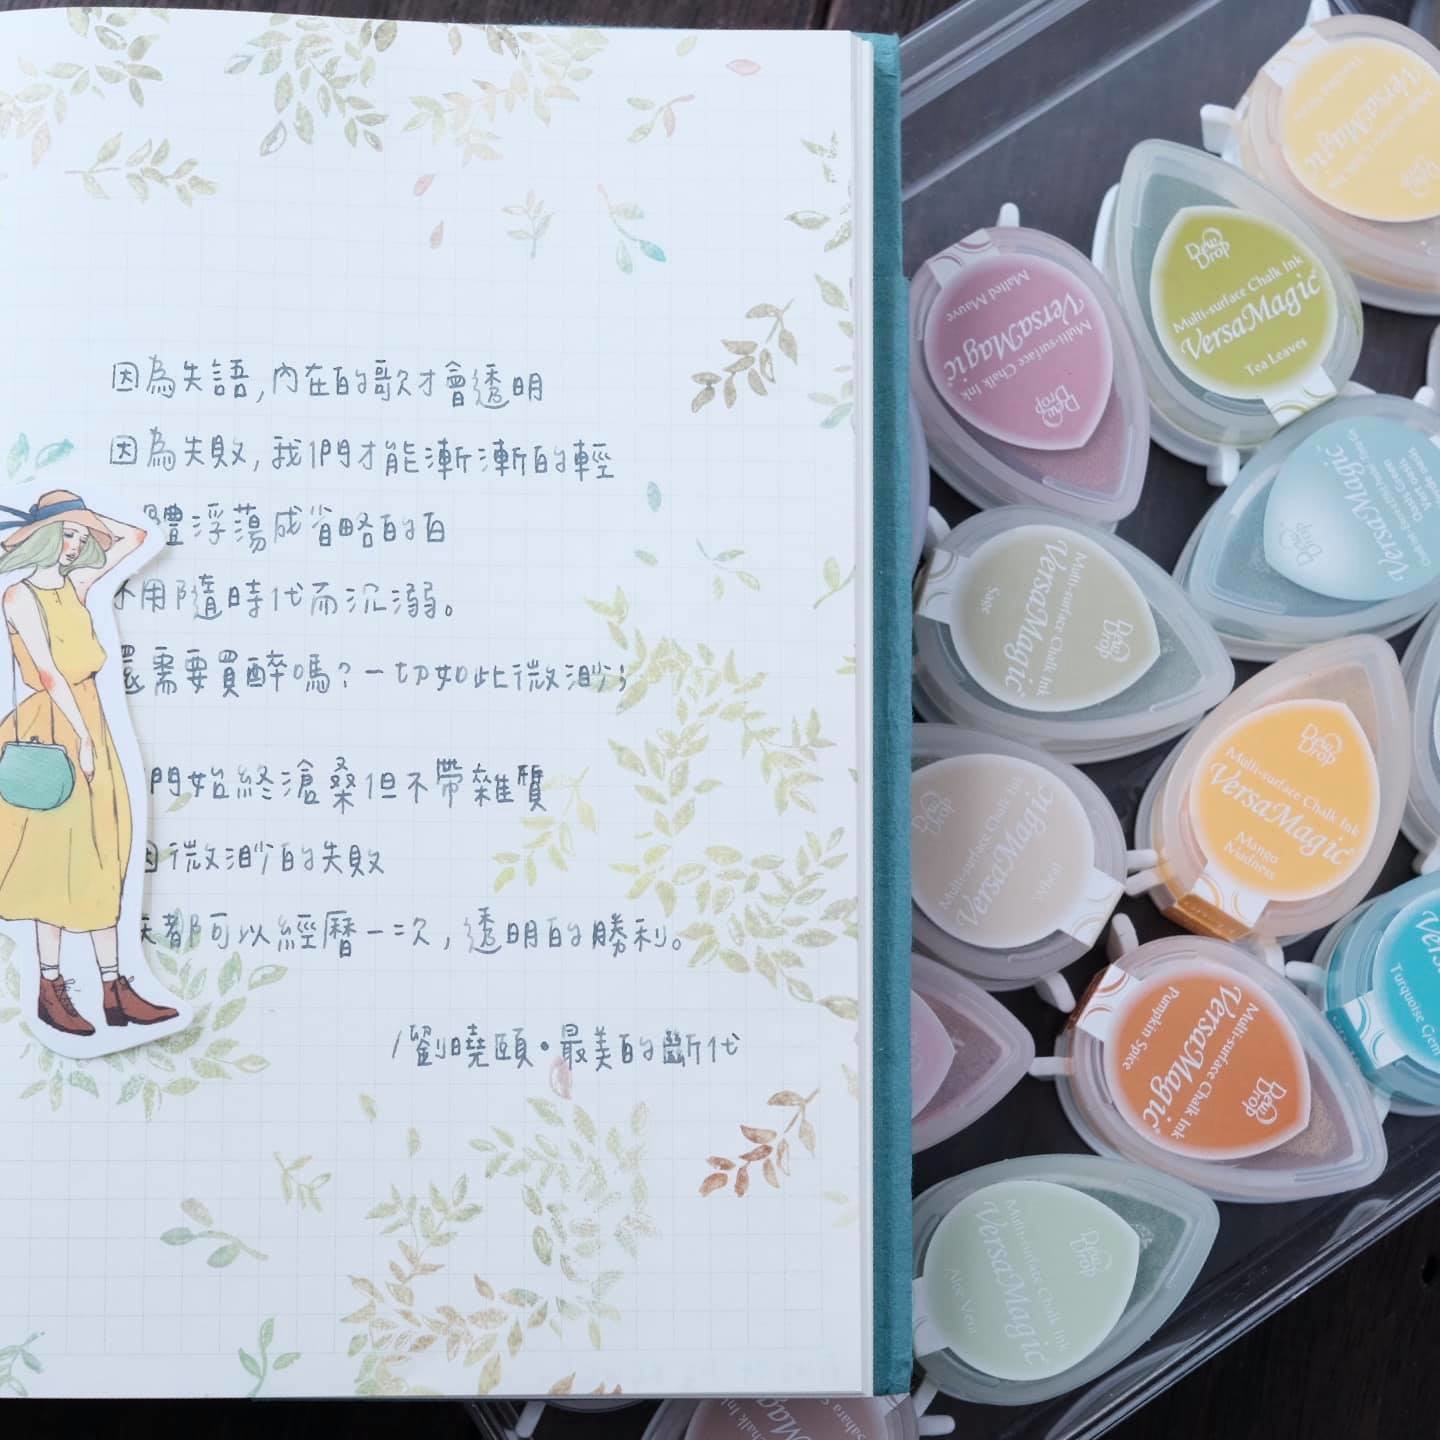 因為失語,內在的歌才會透明
因為失敗,我們才能漸漸的輕
體浮蕩成省略的白
不用隨時代而沉溺。
還需要買醉嗎?一切如此微渺;
門始終滄桑但不帶雜質
因微渺的失敗
天都可以經曆一次,透明的勝利。
/劉曉頤•最美的斷代
Dew Drop
Multi-surface Chalk Ink
VersaMagic
Dew Drop
Multi-surface Chalk Ink
VersaMagic
Tea Leaves
Dew Drop
Multi-surface Chalk Ink
VersaMagic
Malted Mauve
Dew Drop
VersaMagic
Dew Drop
Multi-surface Chalk Ink
VersaMagic
Sage
Dew Drop
Multi-surface Chalk Ink
VersaMagic
Mango Madness
Dew Drop
Multi-surface Chalk Ink
VersaMagic
Wheat
Turquoise Gem
Dew Drop
Multi-surface Chalk Ink
VersaMagic
Pumpkin Spice
Dew Drop
Multi-surface Chalk Ink
VersaMagic
Aloe Vera
Chalk Ink
Magic
Sahara